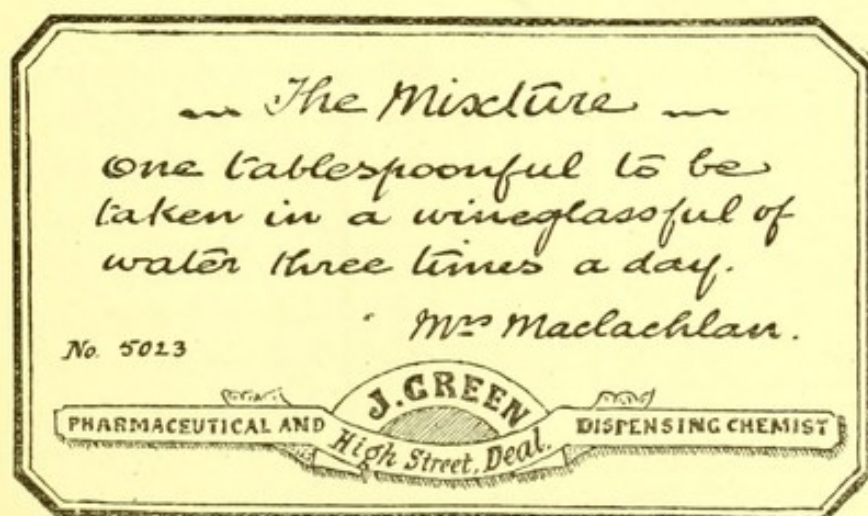 The Mixture
one tablespoonful to be
taken in a wineglassful of
water three times a day.
Mrs Maclachlan.
No. 5023
J. GREEN
PHARMACEUTICAL AND
High Street, Deal.
DISPENSING CHEMIST